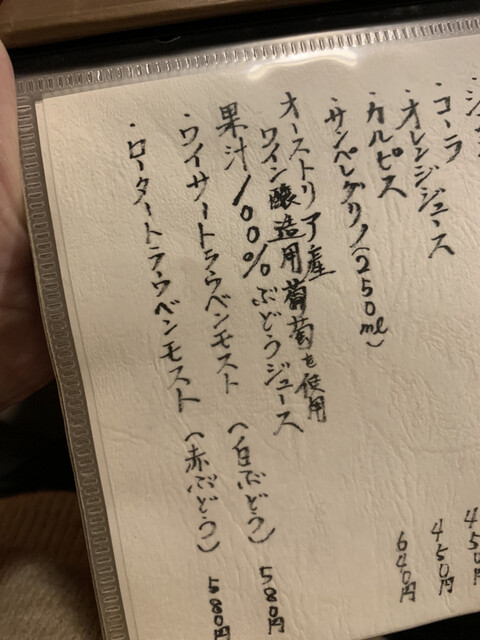 ・コーラ
・オレンジジュース 450円
・カルピス 450円
・サンペレグリノ(250ml) 640円
オーストリア産
ワイン醸造用葡萄を使用
果汁100%ぶどうジュース
・ワイサートラウベンモスト (白ぶどう) 580円
・ロータートラウベンモスト (赤ぶどう) 580円